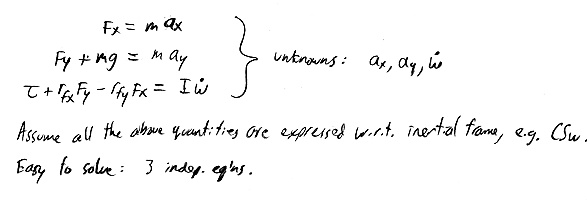 Fx = m ax
Fy + mg = m ay
τ + rfx Fy - rfy Fx = I ω̇
unknowns: ax, ay, ω̇
Assume all the above quantities are expressed w.r.t. inertial frame, e.g. CSw.
Easy to solve: 3 indep. eq'ns.